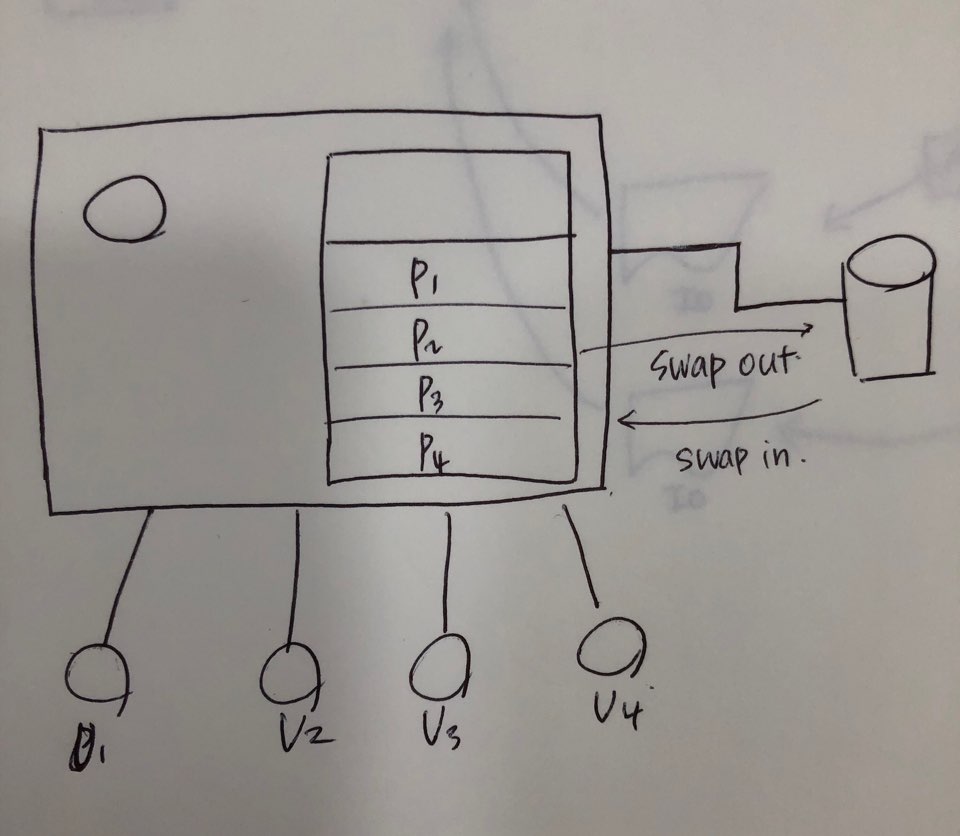 P1
P2
P3
P4
swap out.
swap in.
U1
U2
U3
U4